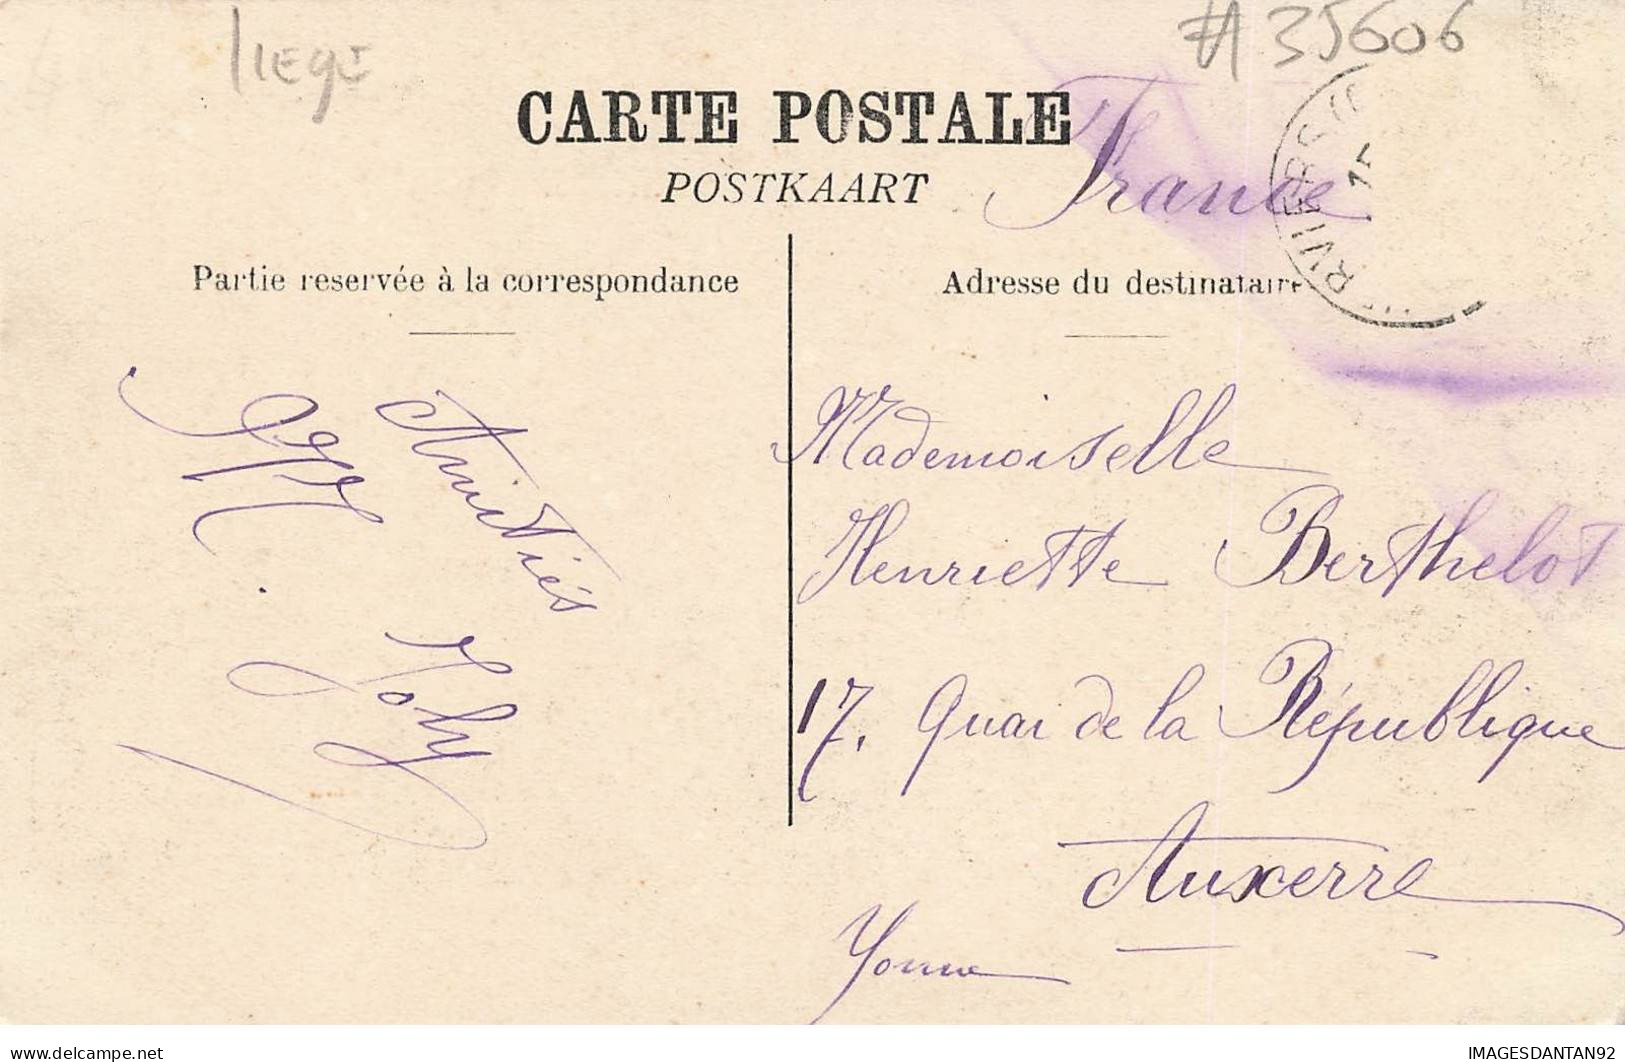 LIEGE
#35606
CARTE POSTALE
POSTKAART
France
Partie reservée à la correspondance
Adresse du destinataire
Amitiés
M. Joly
Mademoiselle
Henriette Berthelot
17, Quai de la République
Auxerre
Yonne
delcampe.net
IMAGESDANTAN92